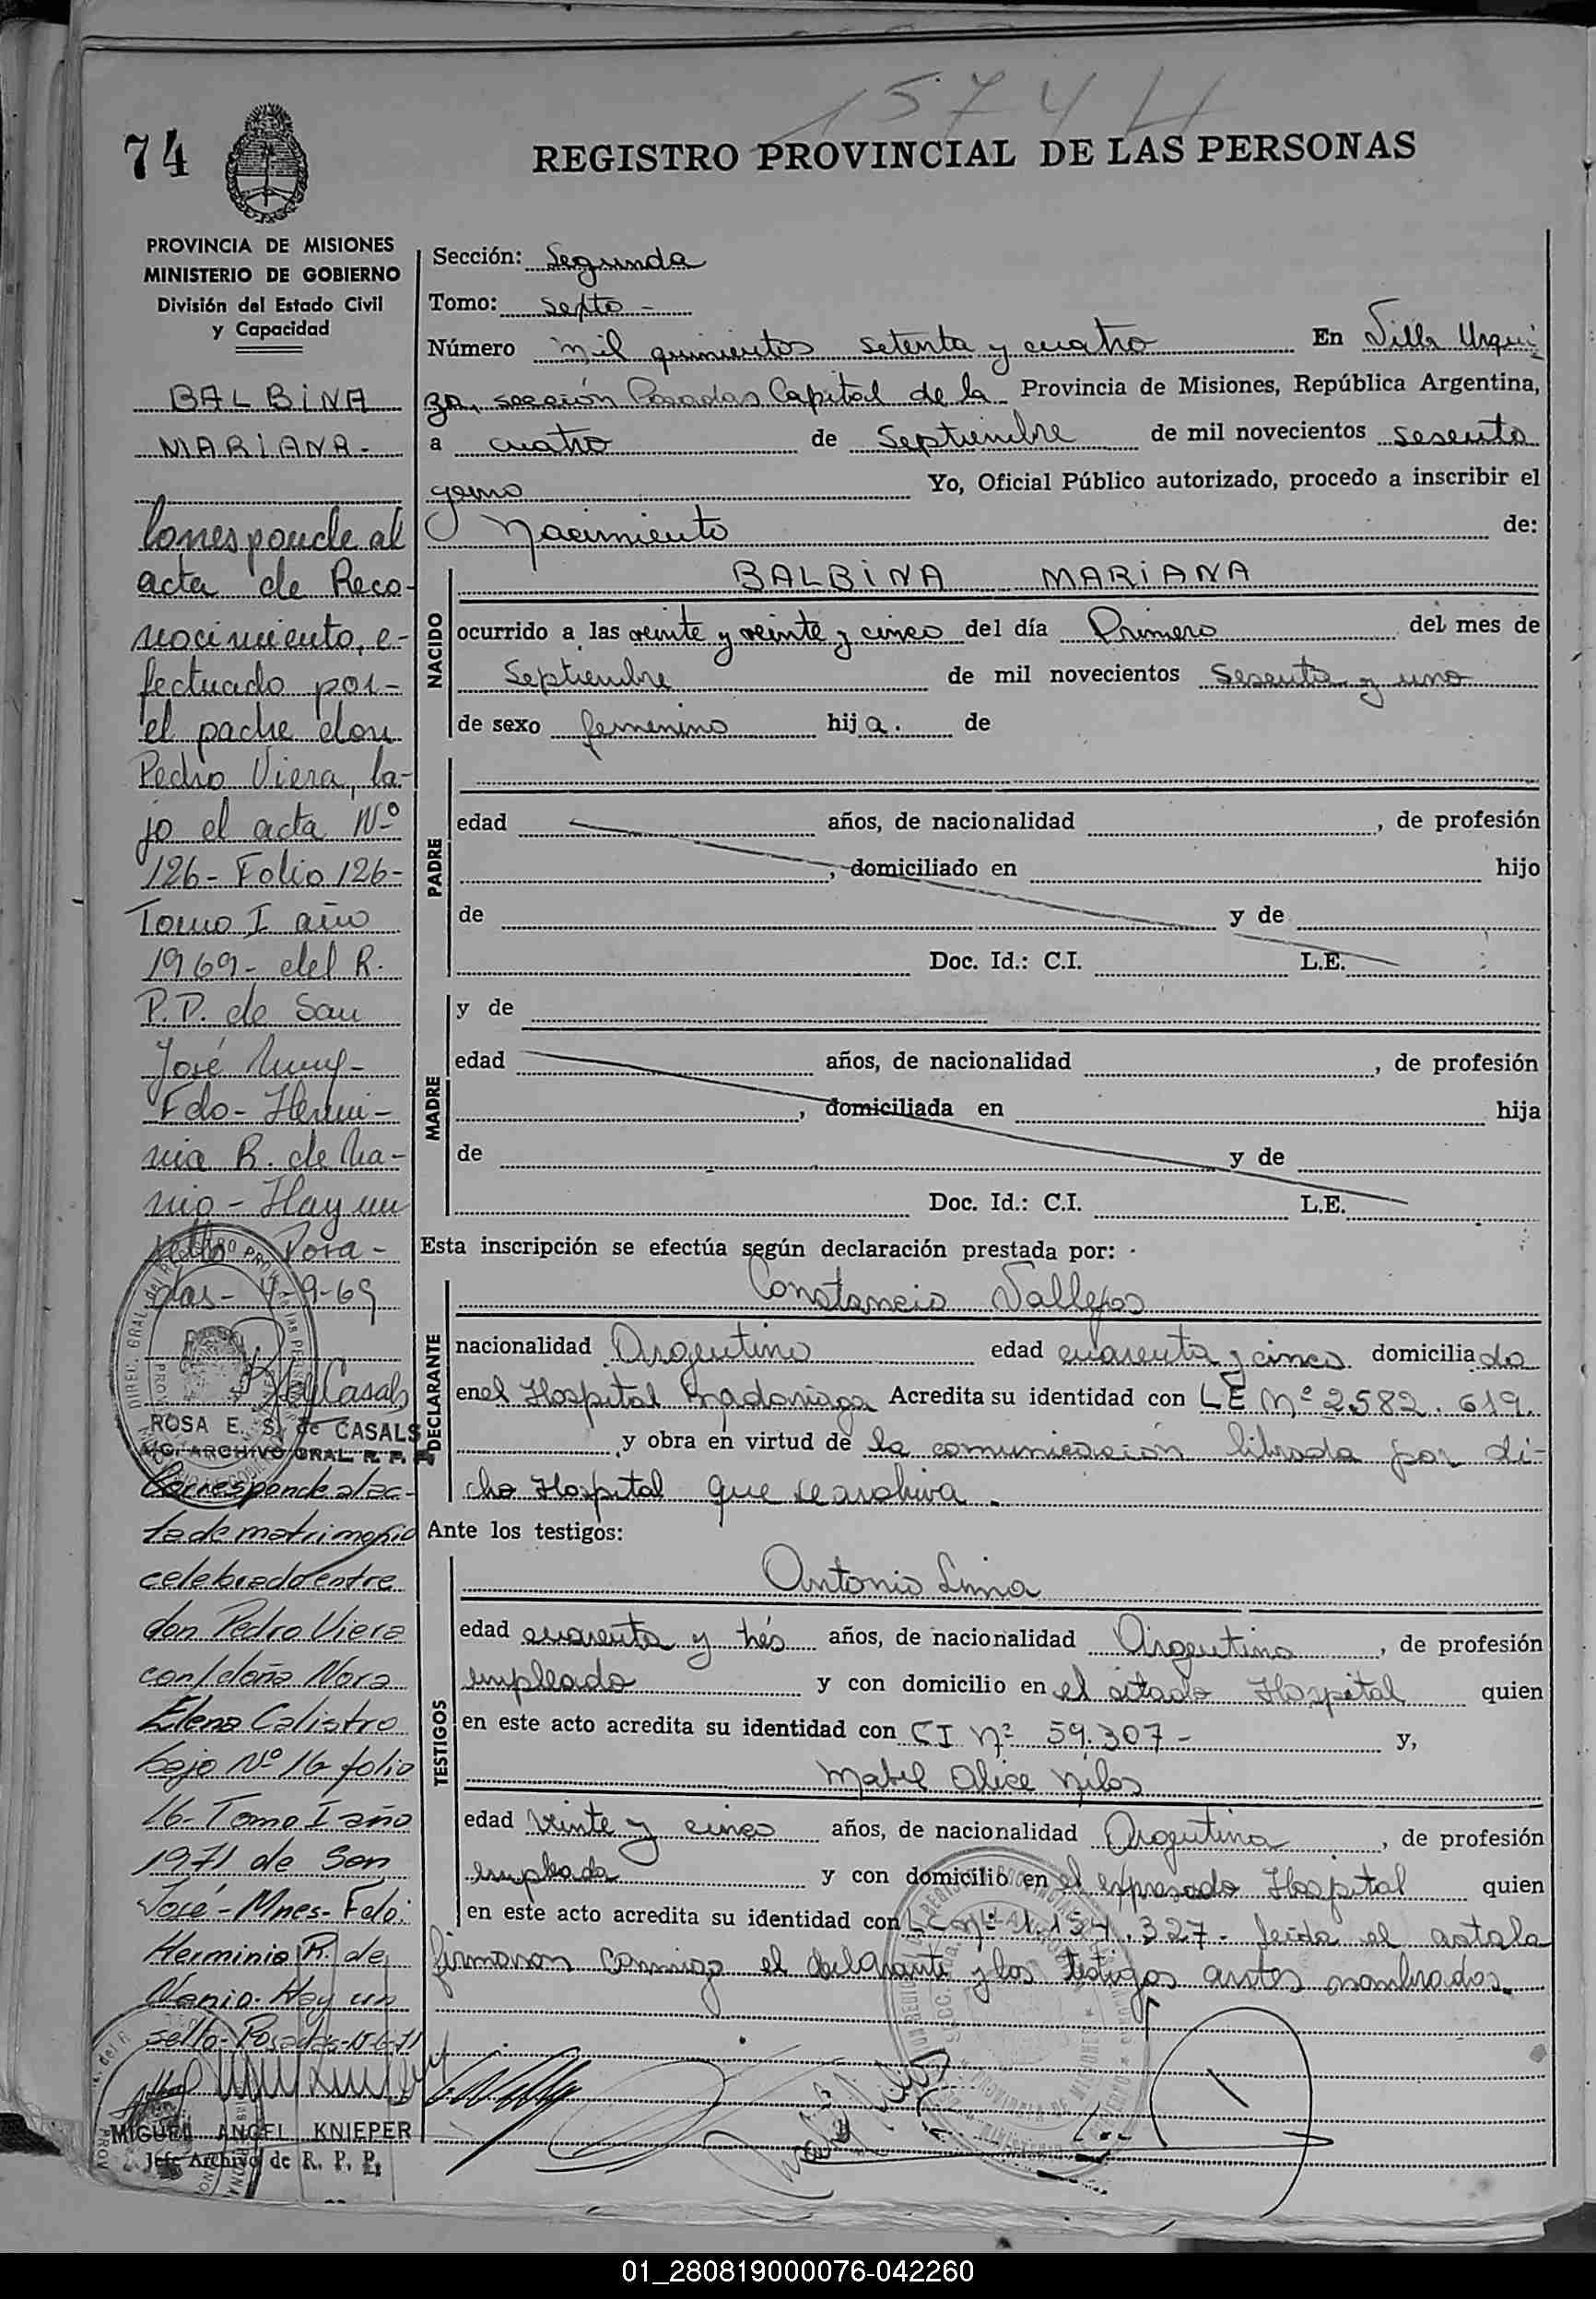 1574
74
REGISTRO PROVINCIAL DE LAS PERSONAS
PROVINCIA DE MISIONES
MINISTERIO DE GOBIERNO
División del Estado Civil
y Capacidad
BALBINA
MARIANA.
Corresponde al
acta de Reco-
nocimiento, e-
fectuado por-
el padre don
Pedro Viera, ba-
jo el acta Nº
126- Folio 126-
Tomo I año
1969- del R.
P.P. de San
José
Fdo- Hermi-
nia R. de Na-
nio- Hay un
sello Posa-
das- 4-9-69
ROSA E. S. de CASALS
ARCHIVO GRAL. R. P. P.
Corresponde al ac-
ta de matrimonio
celebrado entre
don Pedro Viera
con/doña Nora
Elena Calistro
bajo Nº 16 folio
16- Tomo I año
1971 de San
José- Mnes- Fdo.
Herminia R. de
Nanio. Hay un
sello- Posadas-15-6-71
MIGUEL ANGEL KNIEPER
Jefe Archivo de R. P. P.
Sección: Segunda
Tomo: septo -
Número mil quinientos setenta y cuatro En Villa Urqui
za, sección Posadas Capital de la Provincia de Misiones, República Argentina,
a cuatro de Septiembre de mil novecientos sesenta
y uno Yo, Oficial Público autorizado, procedo a inscribir el
Nacimiento de:
NACIDO
BALBINA MARIANA
ocurrido a las veinte y veinte y cinco del día Primero del mes de
Septiembre de mil novecientos sesenta y uno
de sexo femenino hija. de
PADRE
edad años, de nacionalidad , de profesión
, domiciliado en hijo
de y de
Doc. Id.: C.I. L.E.
MADRE
y de
edad años, de nacionalidad , de profesión
, domiciliada en hija
de y de
Doc. Id.: C.I. L.E.
Esta inscripción se efectúa según declaración prestada por:
DECLARANTE
Constancio Vallejos
nacionalidad Argentino edad cuarenta y cinco domiciliado
en el Hospital Madariaga Acredita su identidad con LE Nº 2582.619.
y obra en virtud de la comunicación librada por di-
cho Hospital que se archiva.
Ante los testigos:
TESTIGOS
Antonio Lima
edad cuarenta y trés años, de nacionalidad Argentino, de profesión
empleado y con domicilio en el citado Hospital quien
en este acto acredita su identidad con CI Nº 59.307- y,
Mabel Alice
edad veinte y cinco años, de nacionalidad Argentina, de profesión
empleada y con domicilio en el expresado Hospital quien
en este acto acredita su identidad con LC Nº 1.154.327- leída el acta la
firmaron conmigo el declarante y los testigos antes nombrados.
01_280819000076-042260